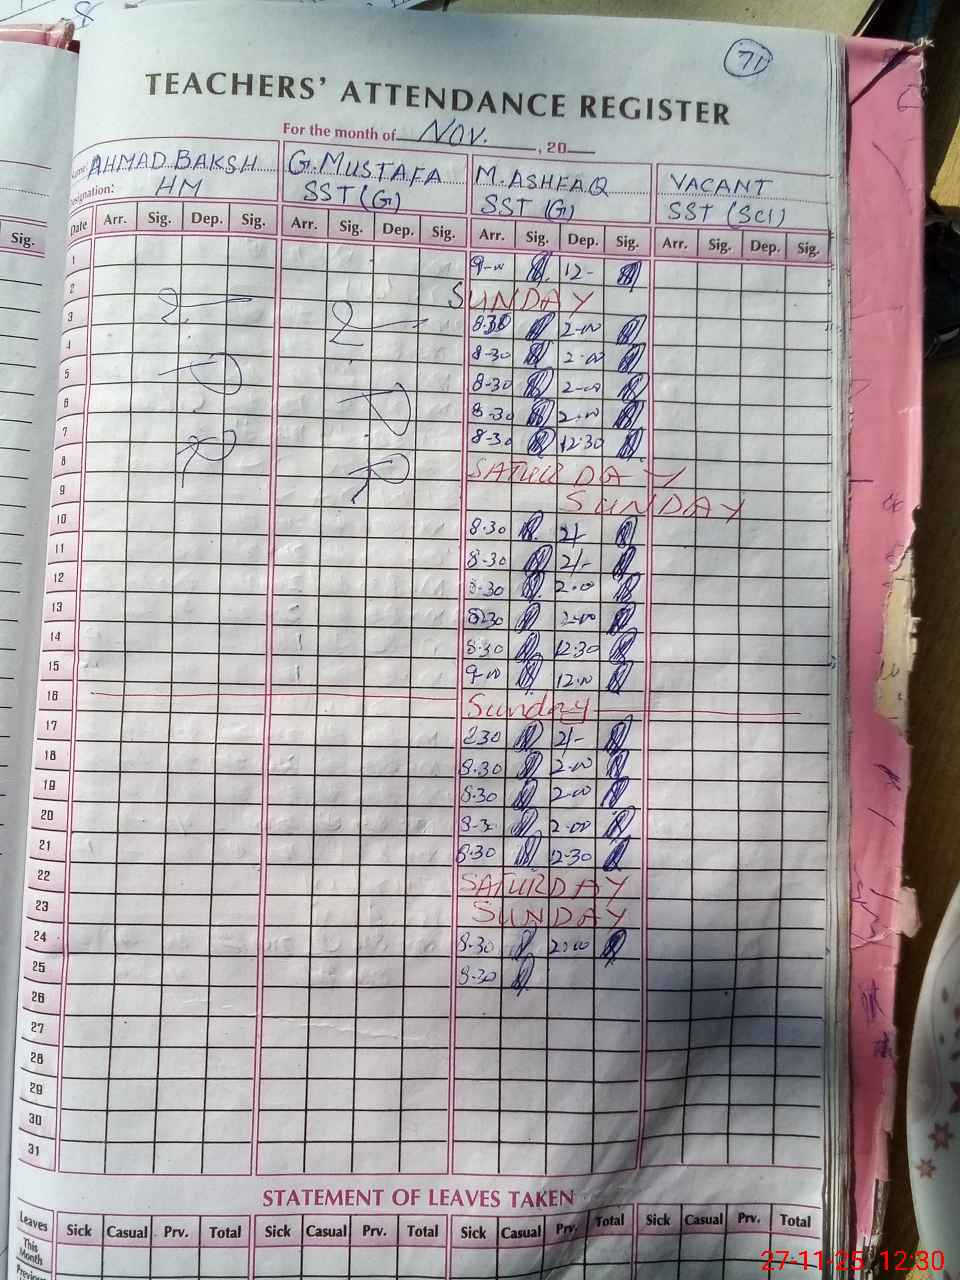 71
TEACHERS' ATTENDANCE REGISTER
For the month of Nov. , 20
Name: AHMAD BAKSH G. MUSTAFA M. ASHFAQ VACANT
Designation: HM SST (G) SST (G) SST (SCI)
Date Arr. Sig. Dep. Sig. Arr. Sig. Dep. Sig. Arr. Sig. Dep. Sig. Arr. Sig. Dep. Sig.
Sig.
1 9-00 12-
2 SUNDAY
3 8.30 2-00
4 8-30 2-00
5 8-30 2-00
6 8-30 2-00
7 8-30 12-30
8 SATURDAY
9 SUNDAY
10 8-30 2/-
11 8-30 2/-
12 8-30 2-00
13 8-30 2-00
14 8-30 12-30
15 9-00 12-00
16 Sunday
17 830 2/-
18 8-30 2-00
19 8-30 2-00
20 8-30 2-00
21 8-30 12-30
22 SATURDAY
23 SUNDAY
24 8-30 2-00
25 8-30
26
27
28
29
30
31
STATEMENT OF LEAVES TAKEN
Leaves Sick Casual Prv. Total Sick Casual Prv. Total Sick Casual Prv. Total Sick Casual Prv. Total
This Month
Previous
27-11-25 12:30